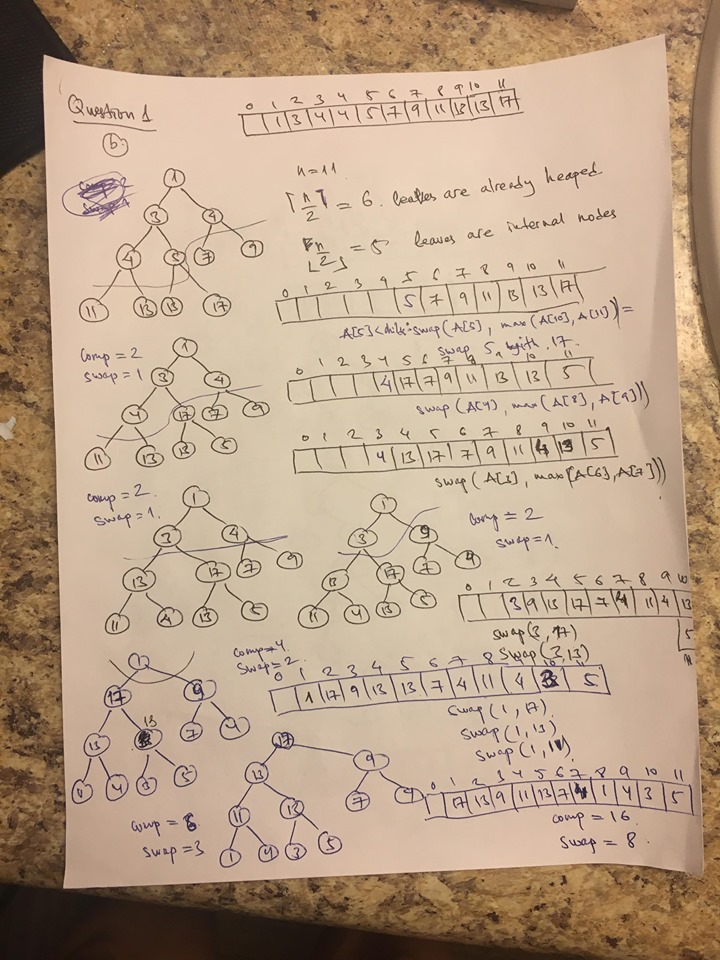 Question 1
b.
0 1 2 3 4 5 6 7 8 9 10 11
1 3 4 4 5 7 9 11 13 13 17
n=11
⌈n/2⌉ = 6. are already heaped
⌊n/2⌋ = 5 leaves are internal nodes
1
3 4
4 5 7 9
11 13 13 17
0 1 2 3 4 5 6 7 8 9 10 11
5 7 9 11 13 13 17
swap(A[5], max(A[10], A[11]) =
swap 5 with 17.
comp = 2
swap = 1
1
3 4
4 17 7 9
11 13 13 5
0 1 2 3 4 5 6 7 8 9 10 11
4 17 7 9 11 13 13 5
swap (A[4], max(A[8], A[9]))
0 1 2 3 4 5 6 7 8 9 10 11
4 13 17 7 9 11 4 13 5
swap (A[3], max(A[6], A[7]))
comp = 2.
swap = 1.
1
3 4
13 17 7 9
11 4 13 5
1
3 9
13 17 7 4
11 4 13 5
comp = 2
swap = 1.
0 1 2 3 4 5 6 7 8 9 10
3 9 13 17 7 4 11 4 13
5
11
swap(3, 17)
swap(3, 13)
comp = 4
swap = 2
0 1 2 3 4 5 6 7 8 9 10 11
1 17 9 13 13 7 4 11 4 3 5
swap (1, 17)
swap (1, 13)
swap (1, 11)
1
17 9
13 13 7 4
11 4 3 5
17
13 9
11 13 7 4
1 4 3 5
comp = 6
swap = 3
0 1 2 3 4 5 6 7 8 9 10 11
17 13 9 11 13 7 4 1 4 3 5
comp = 16
swap = 8.